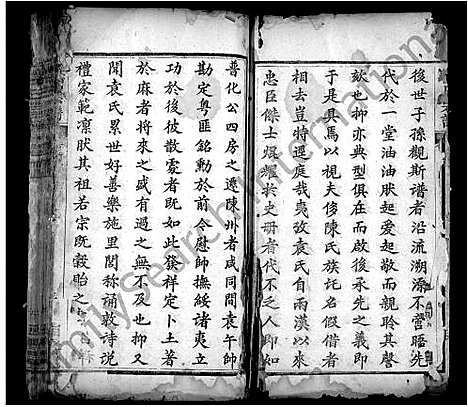 後世子孫觀斯譜者沿流溯源不啻晤先
代於一堂油油肰起愛起敬而親聆其謦
欬也抑亦典型俱在而啟後承先之義即
于是具焉以視夫侈陳氏族託名假借者
相去豈特逕庭哉夷攷袁氏自兩漢以來
忠臣傑士焜耀於史冊者代不乏人即如
普化公四房之遷陳州者咸同間袁午帥
勘定粵匪銘勳於前 慰帥撫綏諸夷立
功於後彼散處者既如此發祥定卜土著
於麻者將來之盛有過之無不及也抑又
聞袁氏累世好善樂施里閭稱誦敦詩說
禮家範凜肰其祖若宗既穀貽之
FamilySearch International